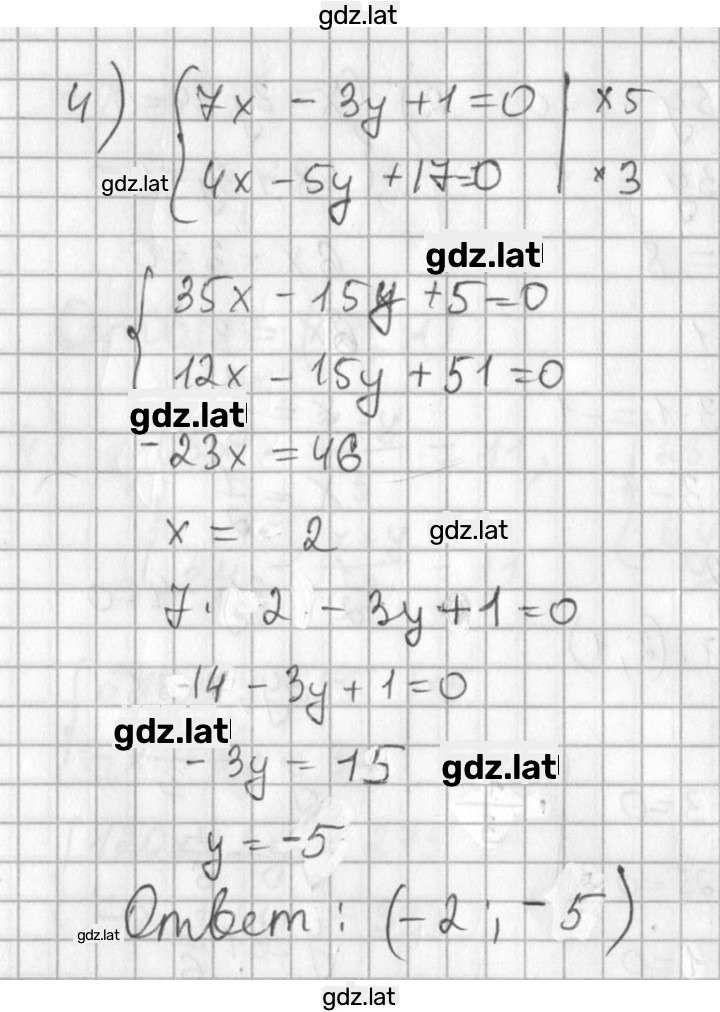 gdz.lat
4) { 7x - 3y + 1 = 0 | × 5
gdz.lat 4x - 5y + 17 = 0 | × 3
gdz.lat
{ 35x - 15y + 5 = 0
12x - 15y + 51 = 0
gdz.lat
- 23x = 46
x = 2 gdz.lat
7 · 2 - 3y + 1 = 0
14 - 3y + 1 = 0
gdz.lat
- 3y = 15 gdz.lat
y = -5
gdz.lat Ответ : (-2 ; -5)
gdz.lat